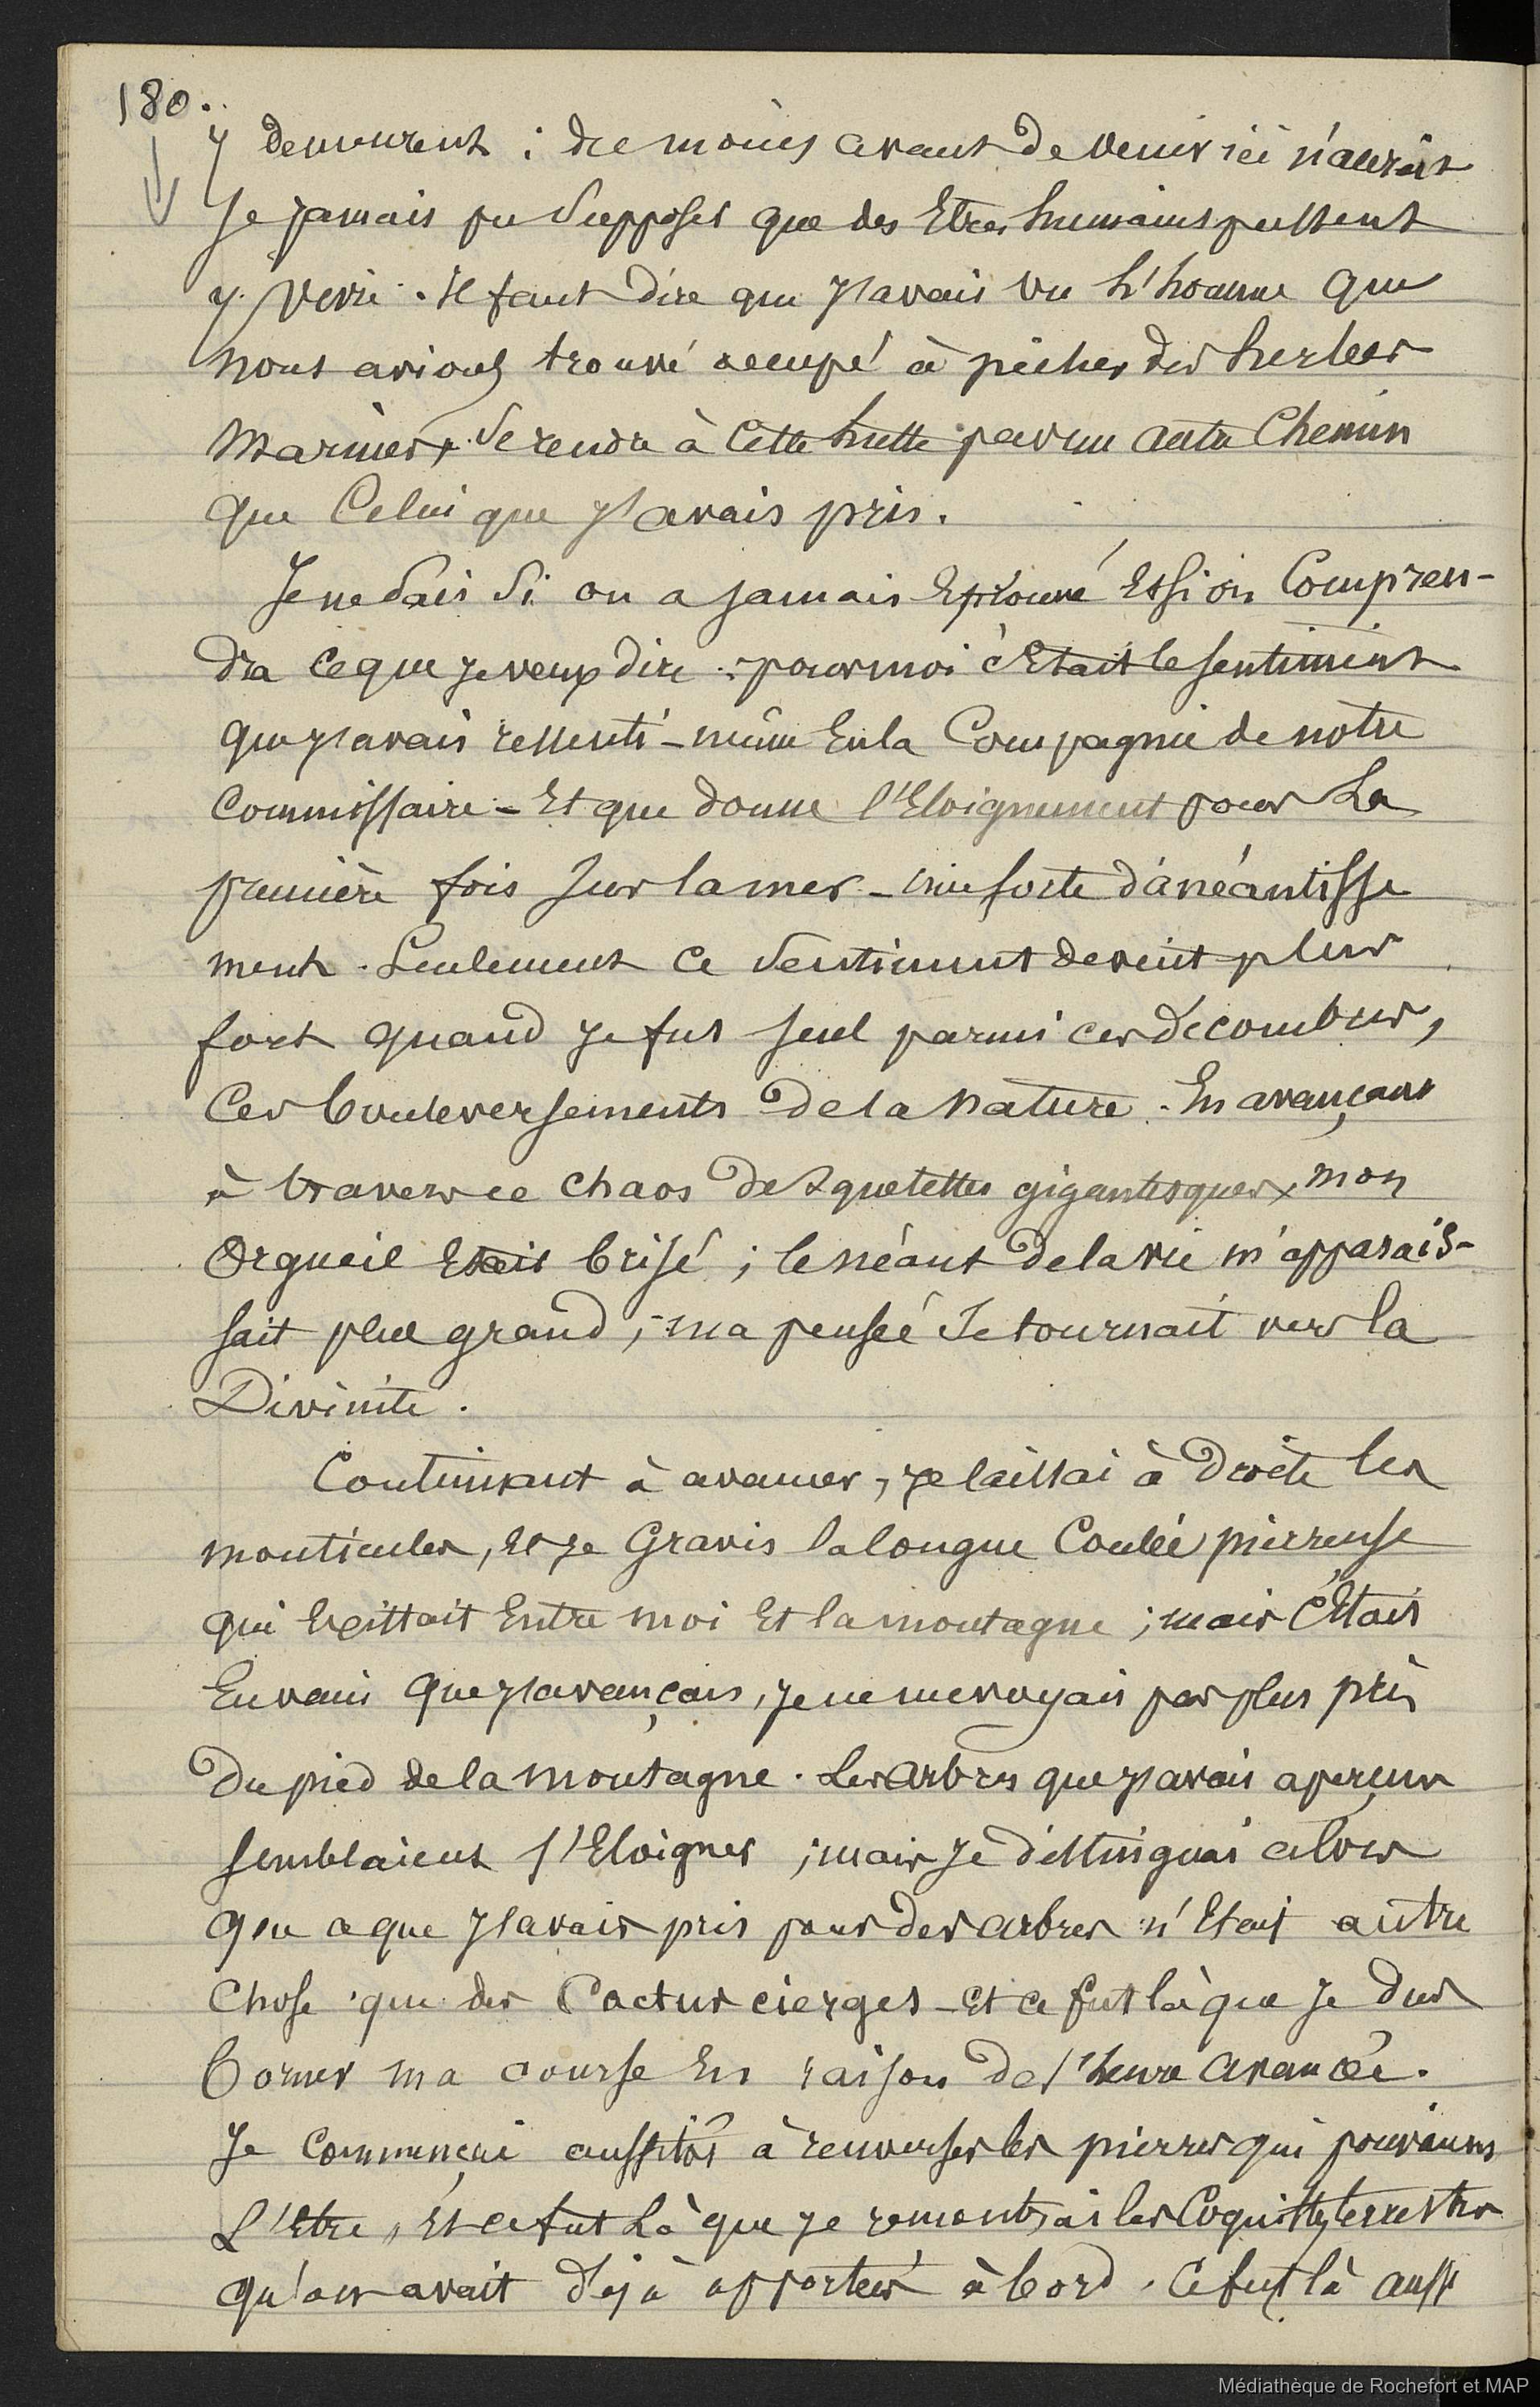 180.
y demeurent ; du moins avant de venir ici n'aurais
Je jamais pu Supposer que des Etres humains pussent
y vivre. Il faut dire que J'avais vu L'homme que
nous avions trouvé occupé à pêcher des herbes
Marines, Se rendre à Cette hutte par un autre Chemin
que Celui que J'avais pris.
Je ne Sais Si on a jamais Eprouvé Et si on Compren-
dra ce que Je veux dire : pour moi c'Etait le sentiment
que J'avais ressenti - même En la Compagnie de notre
Commissaire - Et que donne l'Eloignement pour La
première fois sur la mer - une sorte d'anéantisse
ment. Seulement ce Sentiment devint plus
fort quand Je fus seul parmi ces décombres,
Ces bouleversements de la nature. En avançant
à travers ce chaos de squelettes gigantesques, mon
Orgueil Etait brisé ; le néant de la vie m'apparais-
sait plus grand ; ma pensée Se tournait vers la
Divinité.
Continuant à avancer, je laissai à Droite les
monticules, et je Gravis la longue Coulée pierreuse
qui Existait Entre moi Et la montagne ; mais c'Etait
En vain que J'avançais, Je ne me voyais pas plus près
du pied de la montagne. Les arbres que J'avais aperçus
semblaient s'Eloigner ; mais Je distinguai alors
que ce que J'avais pris pour des arbres n'Etait autre
Chose que des Cactus cierges - et ce fut là que Je dus
borner ma course En raison de l'heure avancée.
Je commençai aussitôt à renverser les pierres qui pouvaient
L'Etre, Et ce fut Là que je rencontrai les Coquilles terrestres
qu'on avait déjà apportées à bord. Ce fut là aussi
Médiathèque de Rochefort et MAP